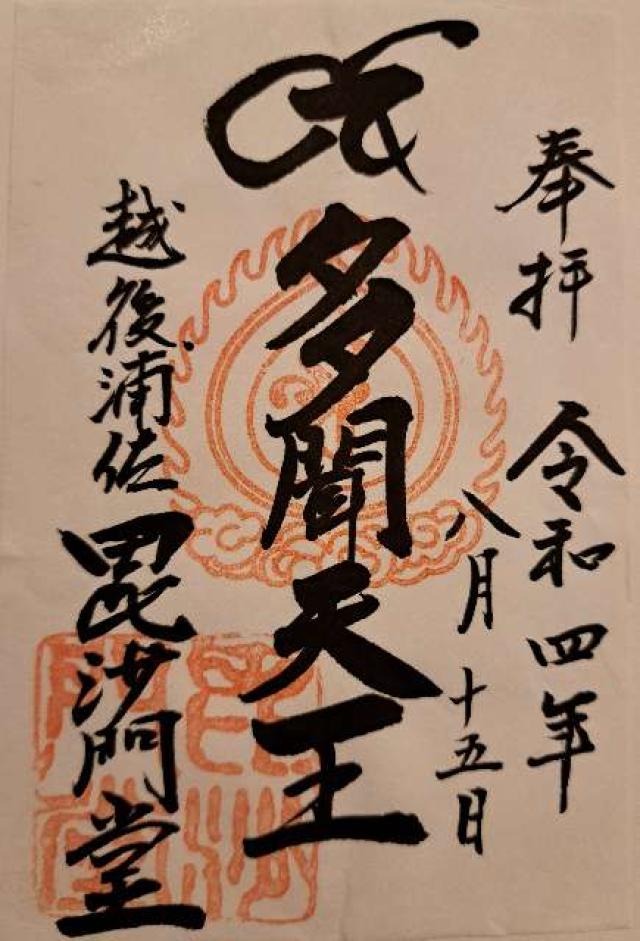 奉拝 令和四年
八月十五日
多聞天王
越後浦佐 毘沙門堂
毘沙門堂